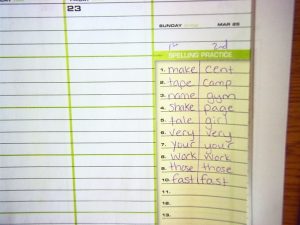 FRIDAY
23
SUNDAY MAR 25
1st 2nd
SPELLING PRACTICE
1. make cent
2. tape camp
3. name gym
4. shake page
5. tale girl
6. very very
7. your your
8. work work
9. those those
10. fast fast
11.
12.
13.